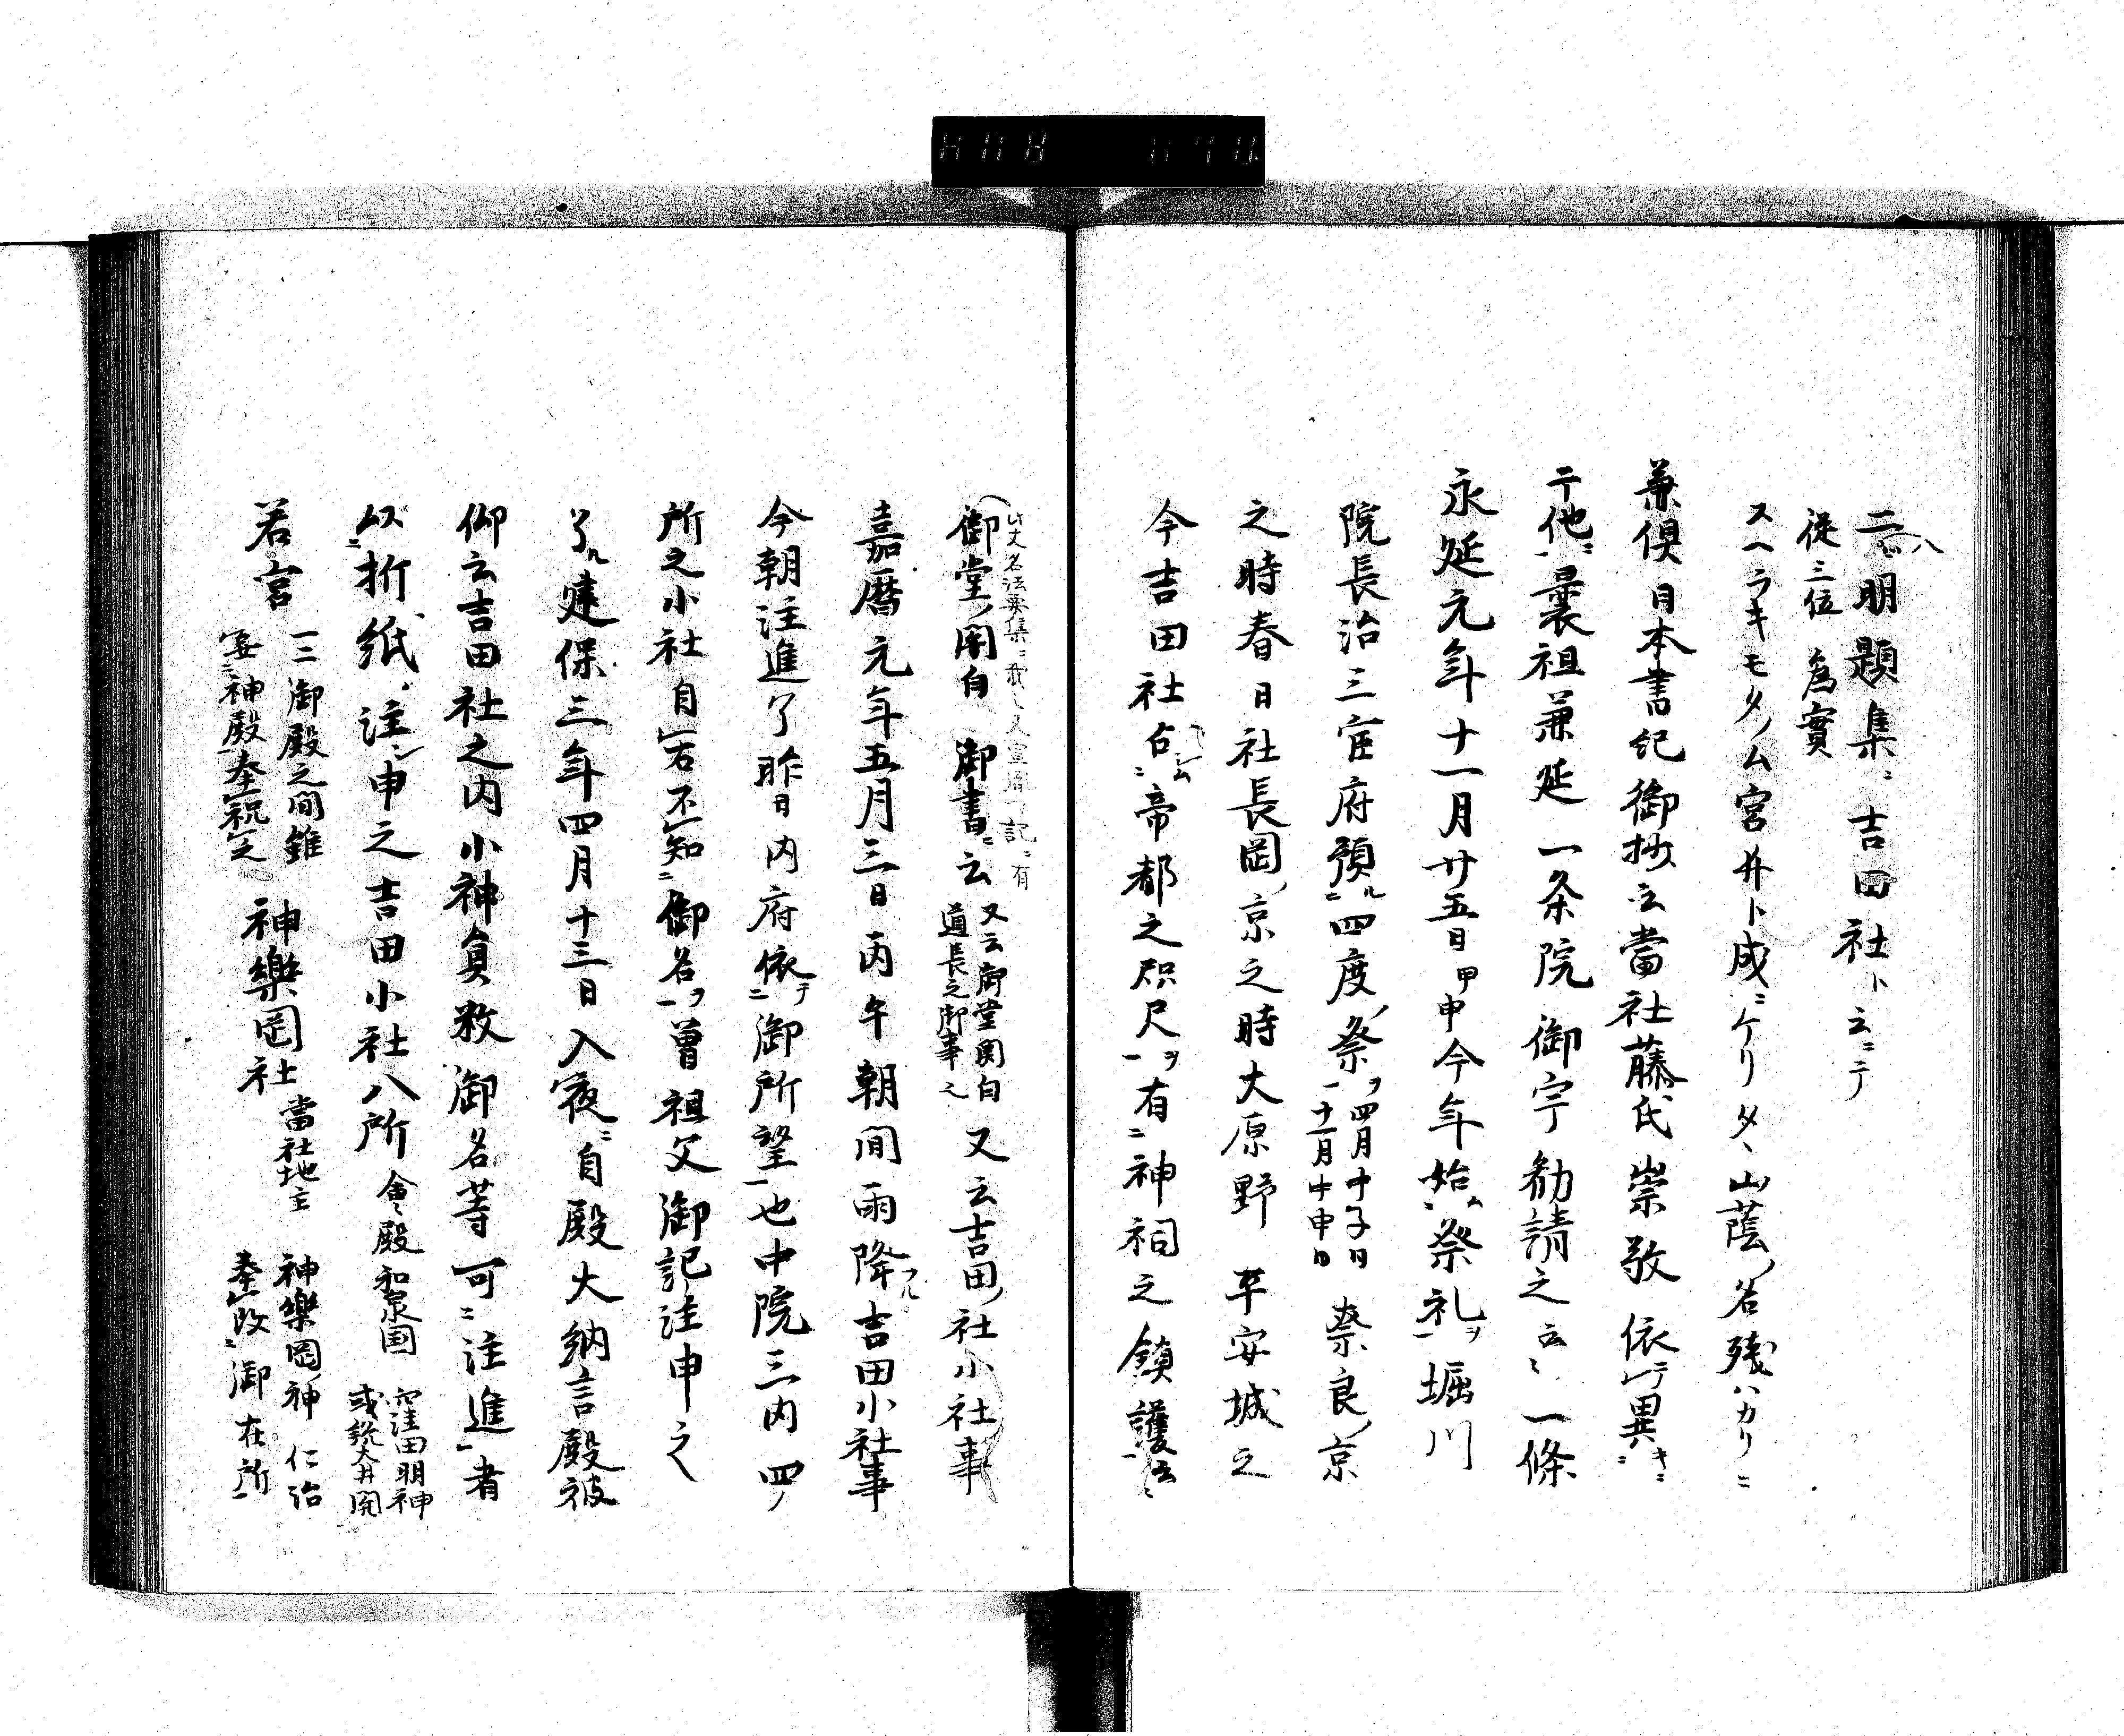 二八明題集ニ吉田社ト云ニテ
従三位為實
スヘラキモタノム宮井ト成ニケリタヽ山蔭ノ名残ハカリニ
兼倶日本書紀御抄云當社藤氏崇敬依テ異キニ
于他ニ曩祖兼延一条院御宇勧請之云〻一條
永延元年十一月廿五日甲申今年始ム祭礼ヲ堀川
院長治三官府預ル四度ノ祭ヲ四月中子日
十一月中申日奈良ノ京
之時春日社長岡ノ京之時大原野平安城之
今吉田社占帝都之咫尺ヲ有神祠之鎮護云〻
御堂ノ関白御書ニ云又云御堂関白
道長之御事之又云吉田ノ社小社事
嘉暦元年五月三日丙午朝間雨降フル吉田小社事
今朝注進了昨日内府依テ御所望也中院三内四ノ
所之小社自ラ不知ニ御名ヲ曽祖父御記注申之
了ル建保三年四月十三日入夜ニ自殿大納言殿被
仰云吉田社之内小神員数御名等可ニ注進者
以折紙ヲ注シ申之吉田小社八所會殿和泉国窪田明神
或説大井関
若宮一二御殿之間雖
奉祝之神樂岡社當社地主神樂岡神仁治
奉改御在所